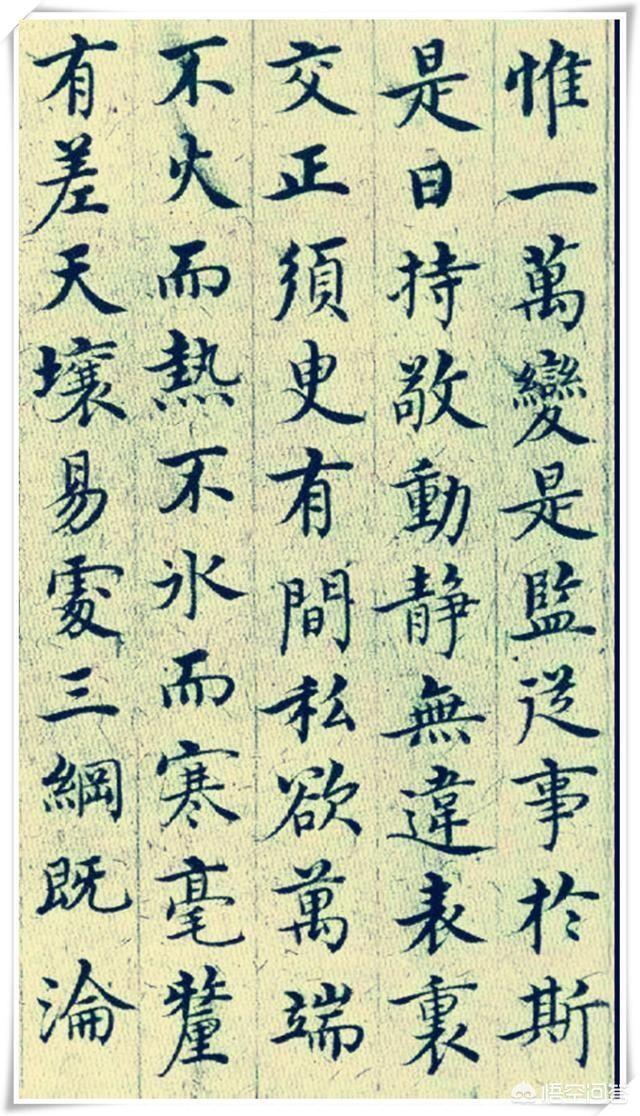 惟一萬變是監從事於斯
是曰持敬動靜無違表裏
交正須臾有間私欲萬端
不火而熱不氷而寒毫釐
有差天壤易處三綱既淪
悟空问答